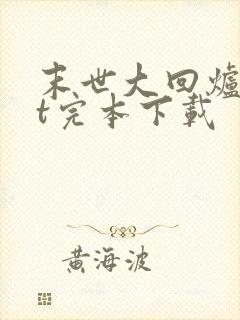 末世大回爐
t完本下載
黃海波